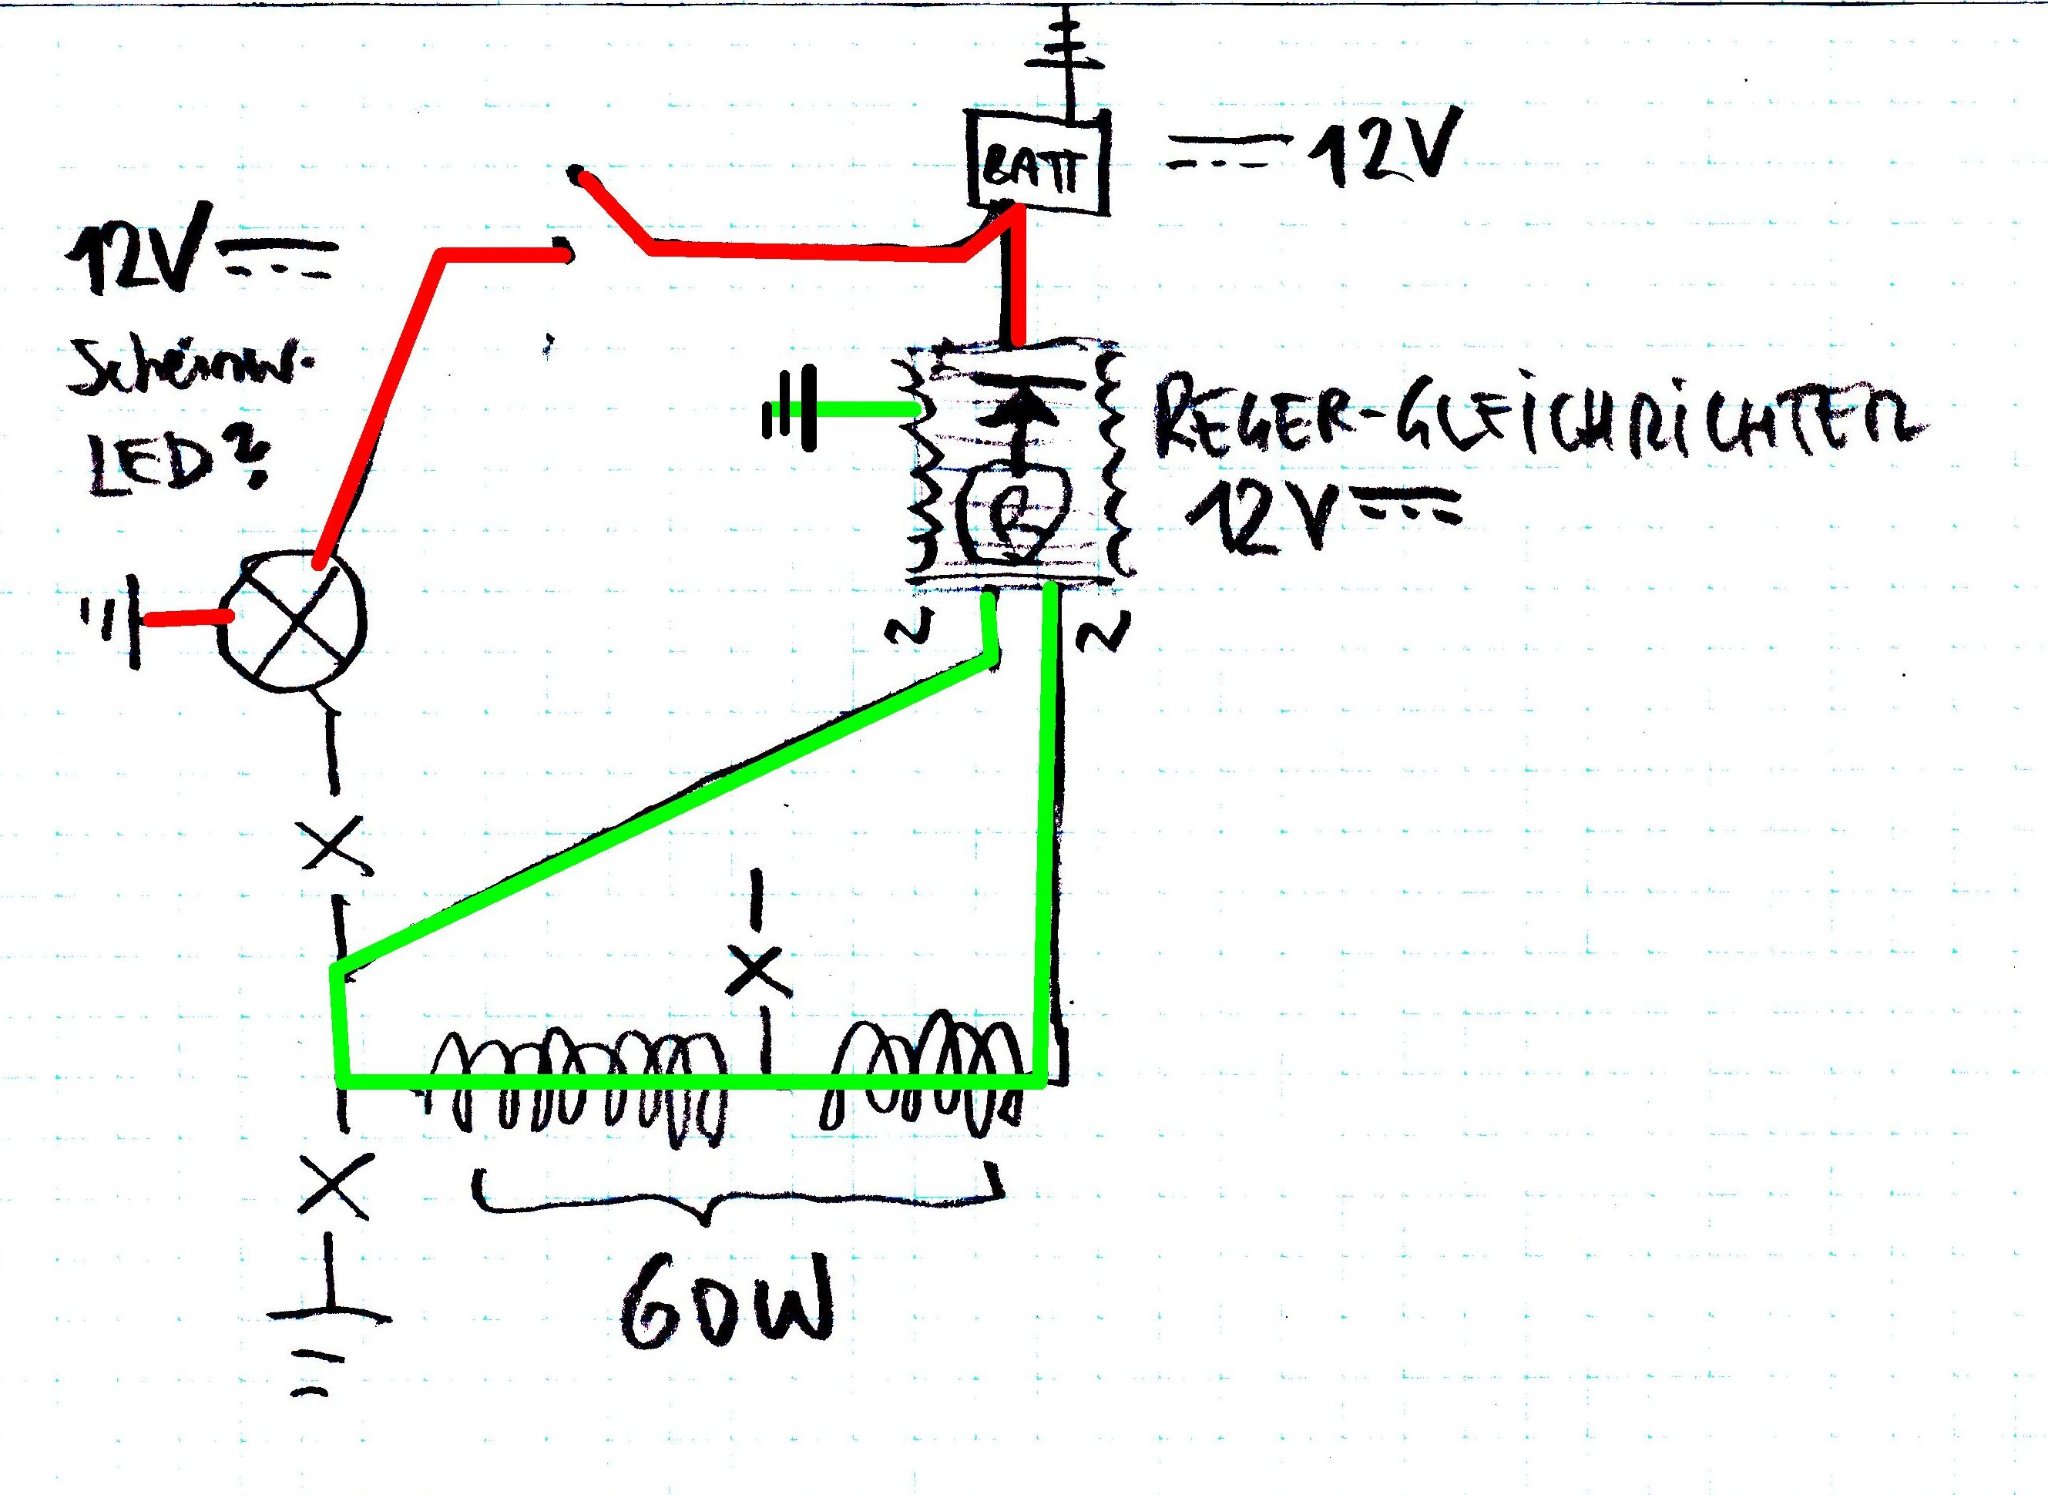 BATT
12V
12V
Scheinw.
LED?
REGER-GLEICHRICHTER
12V
R
~ ~
60W